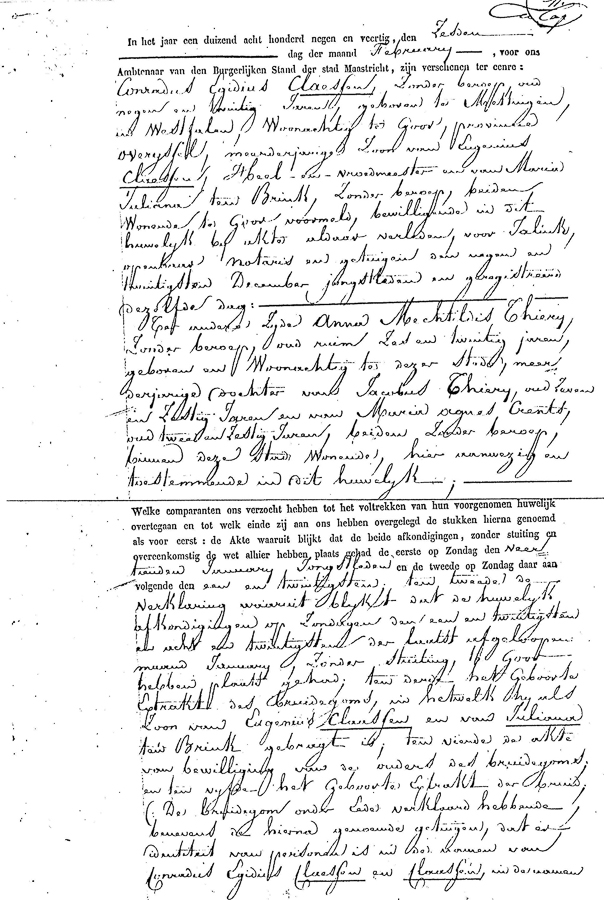 In het jaar een duizend acht honderd negen en veertig, den Zesden
dag der maand February, voor ons
Ambtenaar van den Burgerlijken Stand der stad Maastricht, zijn verschenen ter eenre:
Conradus Egidius Claessen, Zonder beroep oud
negen en twintig Jaren, geboren te
in Westfalen, Woonachtig te Goor, provincie
Overyssel, meerderjarige Zoon van Eugenius
Claessen, Heel- en vroedmeester en van Maria
Juliana ten Brink, Zonder beroep, beiden
Wonende te Goor voormeld, bewilligende in dit
huwelyk by akte aldaar verleden, voor Jalink,
openbaar notaris en getuigen den negen en
twintigsten December jongstleden en geregistreerd
dezelfde dag:
Ter andere Zyde Anna Mechtildis Thiery,
Zonder beroep, oud ruim Zes en twintig jaren,
geboren en Woonachtig te dezer Stede, meer
derjarige dochter van Jacobus Thiery, oud Zeven
en Zestig Jaren en van Maria Agnes Crents,
oud twee en Zestig Jaren, beiden Zonder beroep,
binnen deze Stad Wonende, hier aanwezig en
toestemmende in dit huwelyk;
Welke comparanten ons verzocht hebben tot het voltrekken van hun voorgenomen huwelijk
overtegaan en tot welk einde zij aan ons hebben overgelegd de stukken hierna genoemd
als voor eerst : de Akte waaruit blijkt dat de beide afkondigingen, zonder stuiting en
overeenkomstig de wet alhier hebben plaats gehad de eerste op Zondag den veer
tienden January Jongstleden en de tweede op Zondag daar aan
volgende den een en twintigsten; ten tweede de
Verklaring waaruit blykt dat de huwelyk
afkondigingen op Zondagen den een en twintigsten
en acht en twintigsten der laatst afgeloopen
maand January, Zonder Stuiting, te Goor
hebben plaats gehad; ten derde het Geboorte
Extrakt des bruidegoms, in hetwelk hy als
Zoon van Eugenius Claessen en van Juliana
ten Brink gebragt is; ten vierde de akte
van bewilliging van de ouders des bruidegoms;
en ten vyfde het Geboorte Extrakt der bruid;
(: De bruidegom onder Eede verklaard hebbende,
benevens de hierna genoemde getuigen, dat er
identiteit van persoon is in de namen van
Conradus Egidius Claessen en Claessen, in de namen